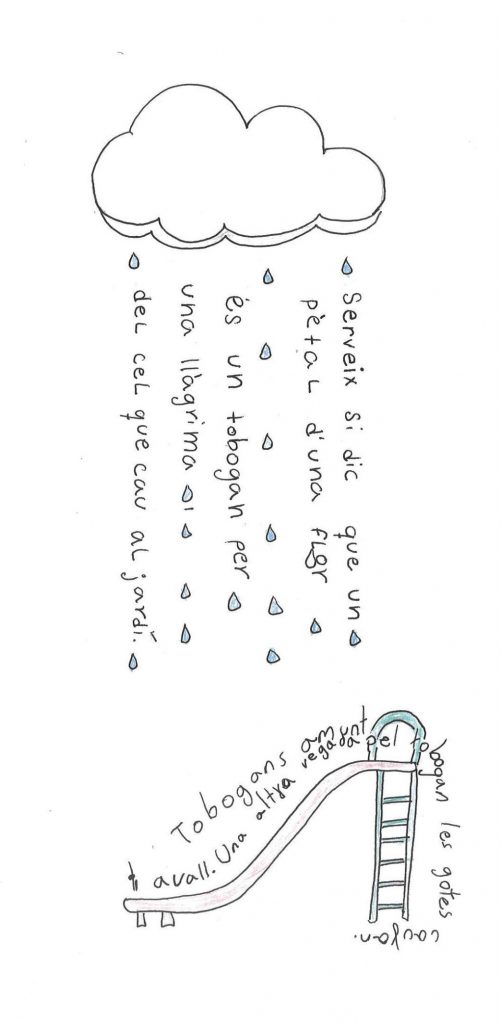 Serveix si dic que un
pètal d'una flor
és un tobogan per
una llàgrima
del cel que cau al jardí.
Tobogans amunt
avall. Una altra vegada pel tobogan les gotes
cauran.